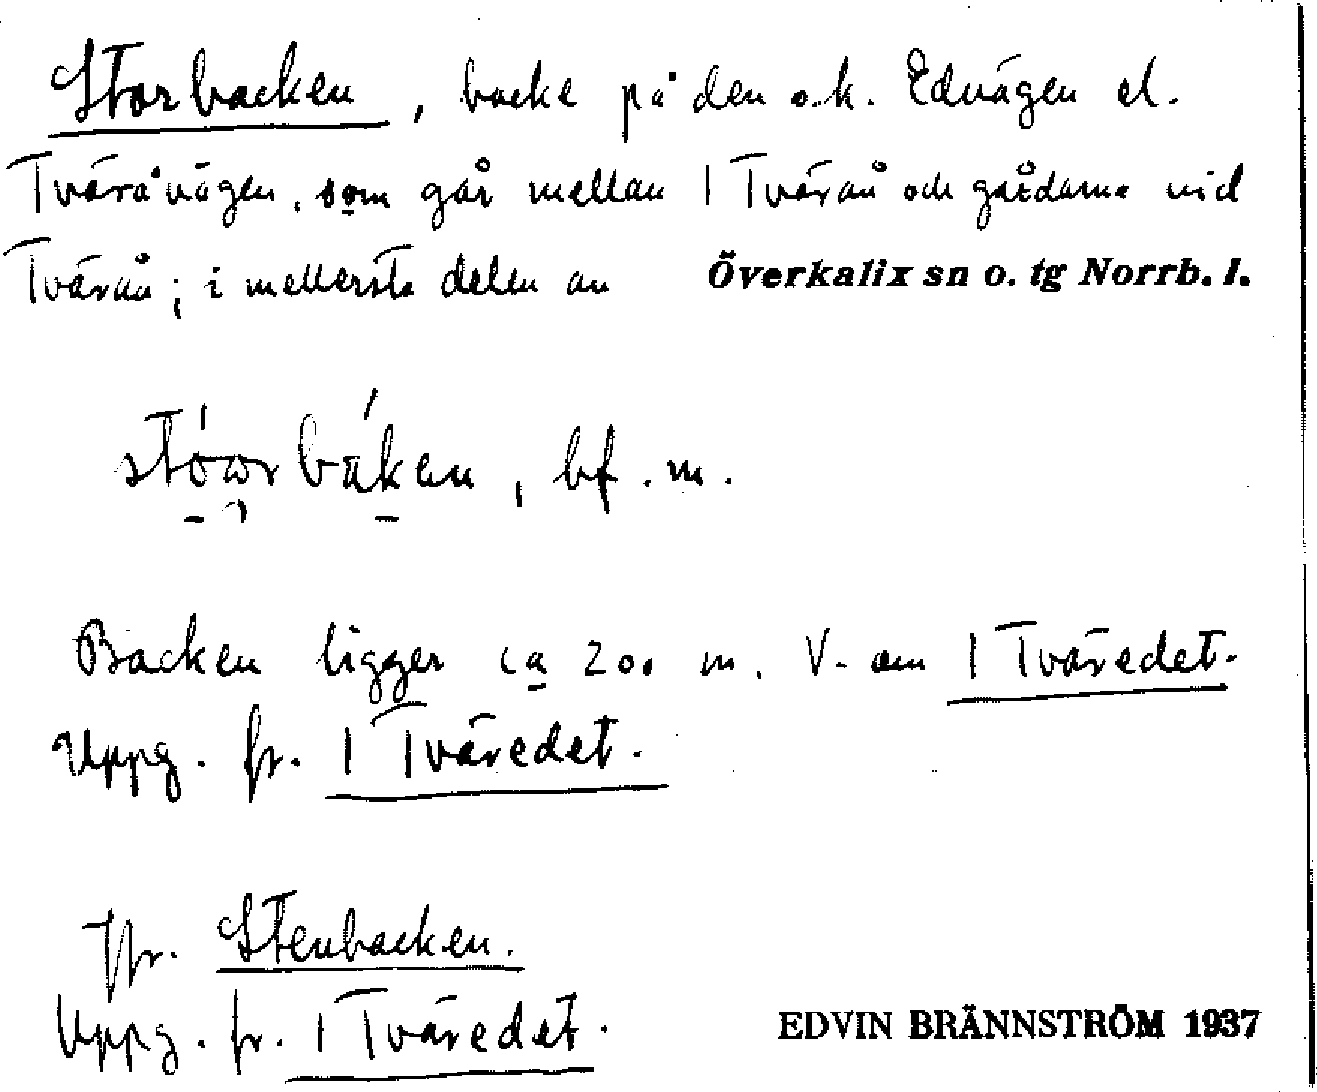 Storbacken, backe på den s.k. Edvägen el.
Tväråvägen, som går mellan 1 Tvärån och gårdarna vid
Tvärån; i mellersta delen av Överkalix sn o. tg Norrb. l.
båken, bf. m.
Backen ligger ca 200 m. V. om 1 Tväredet.
Uppg. fr. 1 Tväredet.
Jfr. Stenbacken.
Uppg. fr. 1 Tväredet.
EDVIN BRÄNNSTRÖM 1937